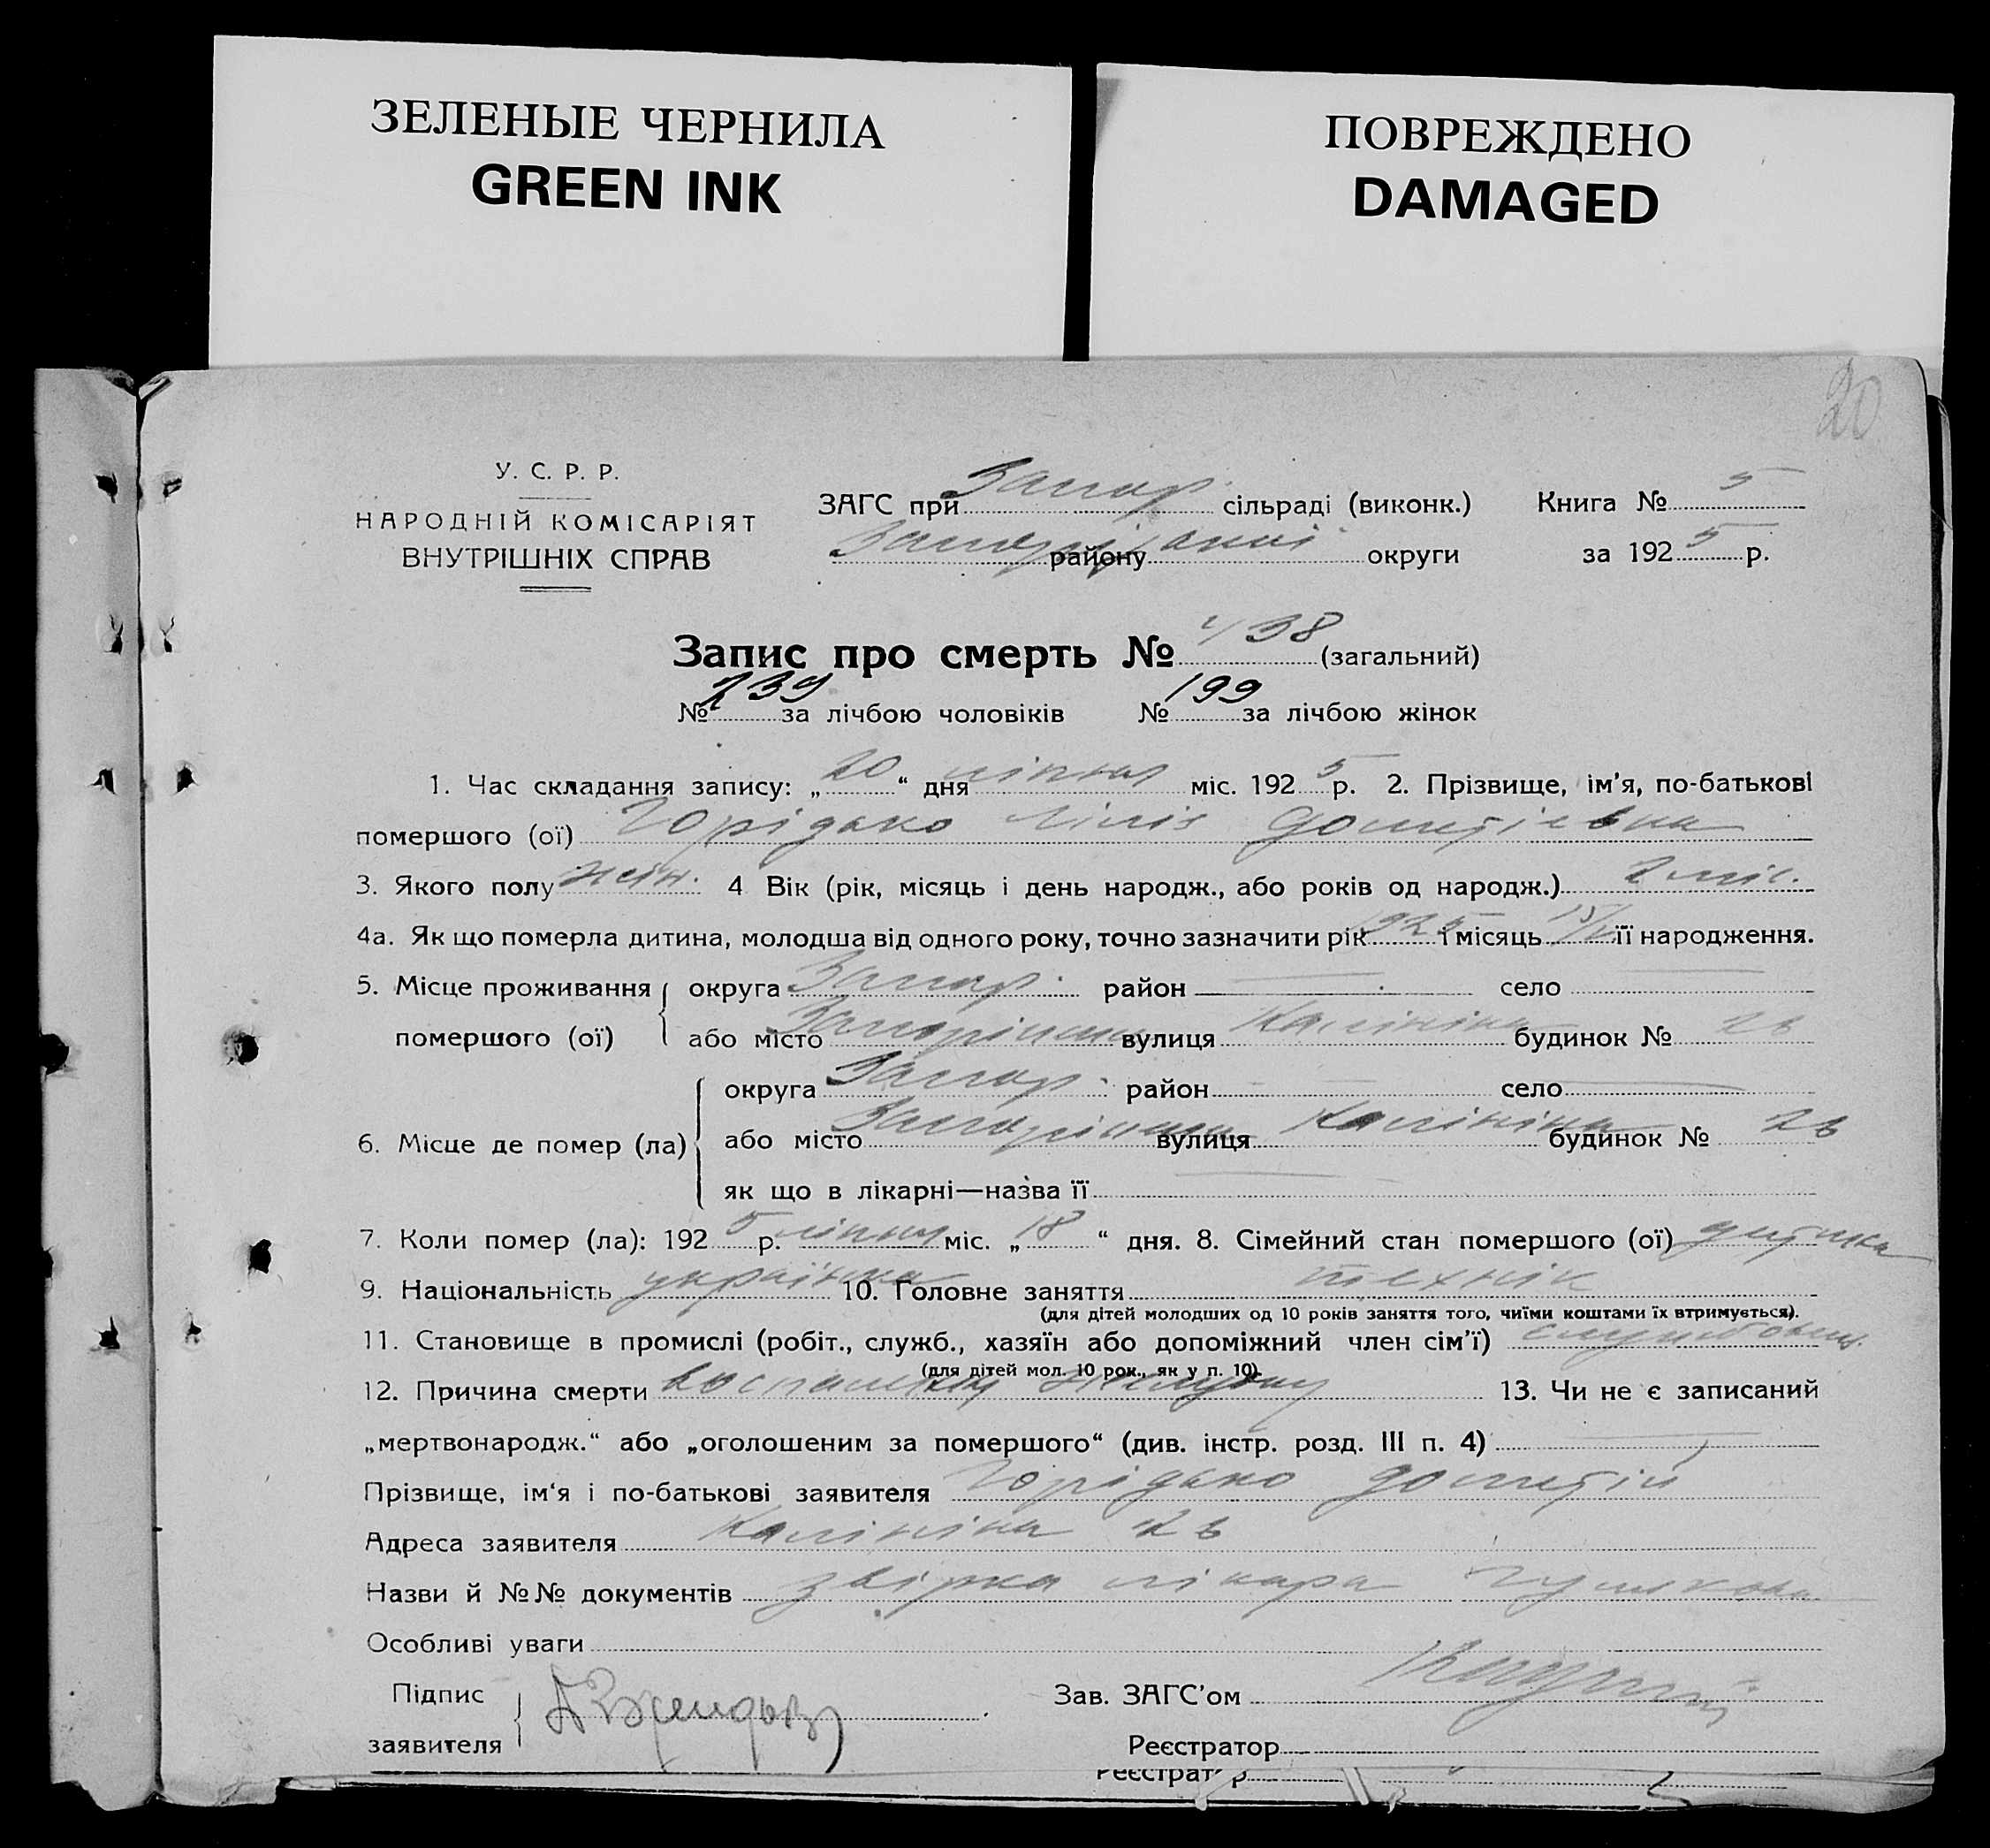 ЗЕЛЕНЫЕ ЧЕРНИЛА
GREEN INK
ПОВРЕЖДЕНО
DAMAGED
20
У. С. Р. Р.
НАРОДНІЙ КОМІСАРІЯТ
ВНУТРІШНІХ СПРАВ
ЗАГС при Запор. сільраді (виконк.) Книга № 5
району округи за 192 5 р.
Запис про смерть № 438 (загальний)
№ 239 за лічбою чоловіків № 199 за лічбою жінок
1. Час складання запису: „ 20 “ дня ліпня міс. 192 5 р. 2. Прізвище, ім’я, по-батькові
помершого (ої) Лілія
3. Якого полу жін. 4 Вік (рік, місяць і день народж., або років од народж.) 2 міс.
4а. Як що померла дитина, молодша від одного року, точно зазначити рік 925 і місяць її народження.
5. Місце проживання округа Запор. район — село —
помершого (ої) або місто Запоріжжя вулиця Калініна будинок №
6. Місце де помер (ла) округа Запор. район — село —
або місто Запоріжжя вулиця Калініна будинок №
як що в лікарні—назва її —
7. Коли помер (ла): 192 5 р. ліпня міс. „ 18 “ дня. 8. Сімейний стан помершого (ої) дитина
9. Національність українка 10. Головне заняття технік
(для дітей молодших од 10 років заняття того, чиїми коштами їх втримується).
11. Становище в промислі (робіт., служб., хазяїн або допоміжний член сім’ї)
(для дітей мол. 10 рок., як у п. 10).
12. Причина смерти 13. Чи не є записаний
„мертвонародж.“ або „оголошеним за помершого“ (див. інстр. розд. III п. 4) —
Прізвище, ім‘я і по-батькові заявителя
Адреса заявителя Калініна
Назви й №№ документів лікара
Особливі уваги
Підпис
заявителя
Зав. ЗАГС’ом
Реєстратор
Реєстратор